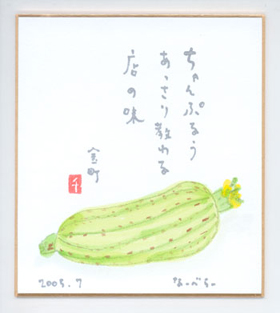 ちゃんぷるう
あっさり教わる
店の味
千
2005.7
なーべらー